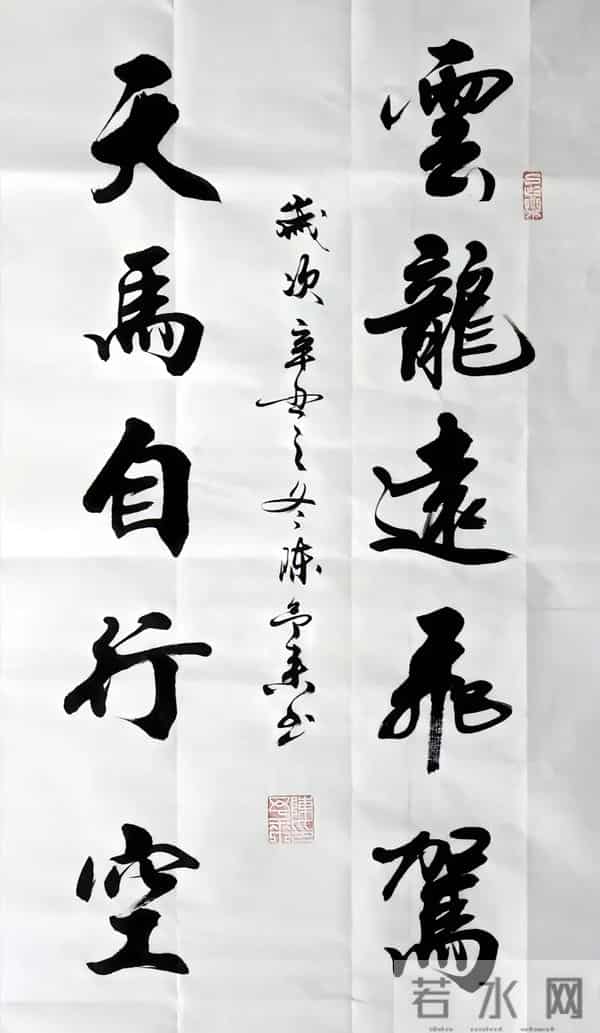 雲龍遠飛駕
天馬自行空
歲次辛丑之冬陳
書
若水网